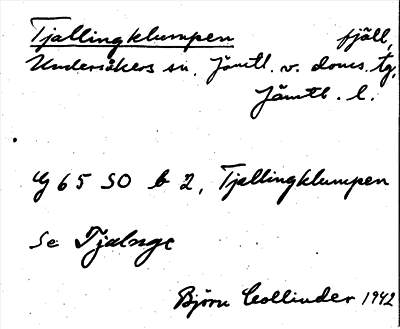 Tjallingklumpen fjäll,
Undersåkers sn. Jämtl. v. doms. tg.
Jämtl. l.
G 65 SO b 2, Tjallingklumpen
Se
Björn Collinder 1942